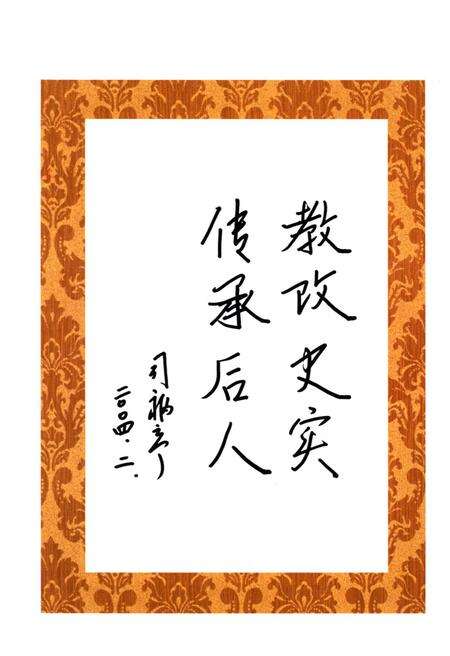 教改史实
传承后人
司福亭
二〇〇四.二.